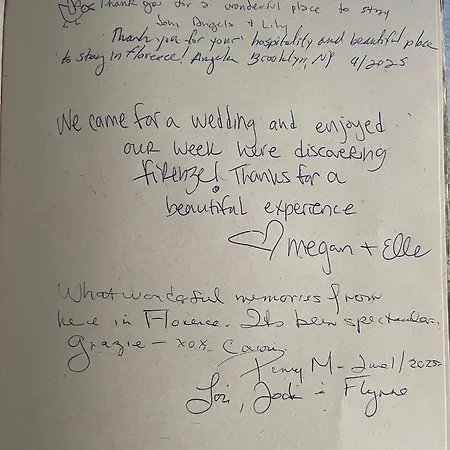 Thank you for a wonderful place to stay
Angela & Lily
Thank you for your hospitality and beautiful place
to stay in Florence, Angela Brooklyn, NY 4/2025
We came for a wedding and enjoyed
our week here discovering
firenze! Thanks for a
beautiful experience
Megan + Elle
What wonderful memories from
here in Florence. Its been spectacular.
Grazie - xox,
M - /2025
Lori, Jack + Flynne